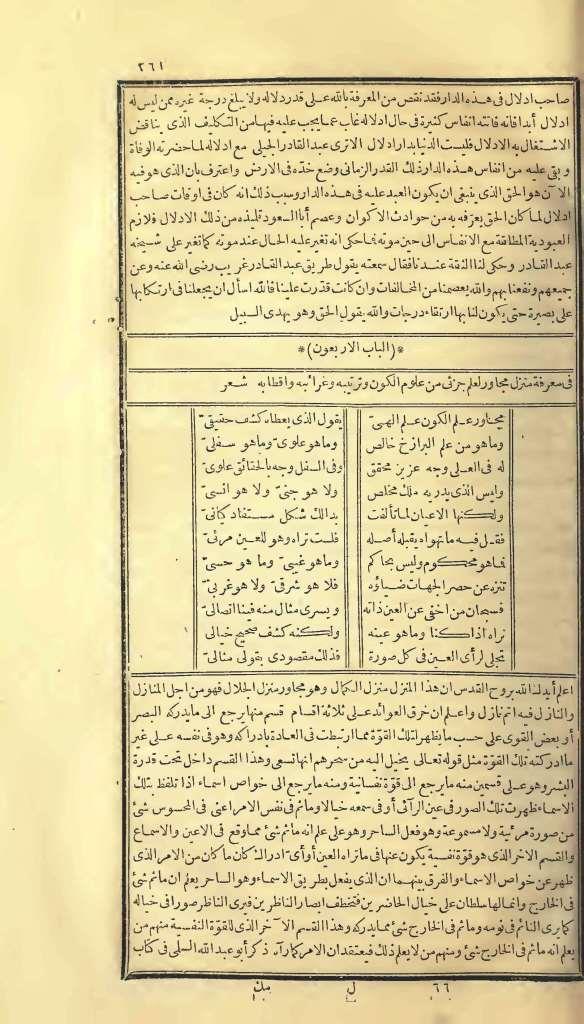 ٢٦١
صاحب ادلال فى هذه الدار فقد نقص من المعرفة بالله على قدر دلاله ولا يبلغ درجة غيره ممن ليس له
ادلال أبدا فانه فاتته انفاس كثيرة فى حال ادلاله غاب عما يجب عليه فيها من التكليف الذى يناقض
الاشتغال به الادلال فليست الدنيا بدار ادلال الاترى عبد القادر الجيلى مع ادلاله لما حضرته الوفاة
وبقى عليه من انفاس هذه الدار ذلك القدر الزمانى وضع خدّه فى الارض واعترف بان الذى هو فيه
الآن هو الحق الذى ينبغى ان يكون العبد عليه فى هذه الدار وسبب ذلك انه كان فى اوقات صاحب
ادلال لما كان الحق يعرّفه به من حوادث الاكوان وعصم أبا السعود تلميذه من ذلك الادلال فلازم
العبودية المطلقة مع الانفاس الى حين موته فما حكى انه تغير عليه الحال عند موته كما تغير على شيخه
عبد القادر وحكى لنا الثقة عندنا قال سمعته يقول طريق عبد القادر غريب رضى الله عنه وعن
جميعهم ونفعنا بهم والله يعصمنا من المخالفات وان كانت قدرت علينا فالله اسأل ان يجعلنا فى ارتكابها
على بصيرة حتى يكون لنا بها ارتقاء درجات والله يقول الحق وهو يهدى السبيل
*(الباب الاربعون)*
فى معرفة منزل مجاور لعلم جزئى من علوم الكون وترتيبه وغرائبه واقطابه شعر
مجاور علم الكون علم الهىّ يقول الذى يعطاه كشف حقيقىّ
وما هو من علم البرازخ خالص وما هو علوىّ وما هو سفلىّ
له فى العلى وجه عزيز محقق وفى السفل وجه بالحقائق علوىّ
وليس الذى يدريه ملك مخلص ولا هو جنىّ ولا هو انسىّ
ولكنها الاعيان لما تألفت بدا لك شكل مستفاد كيانىّ
فقل فيه ما تهواه يقبله أصله فلست تراه وهو للعين مرئىّ
فما هو محكوم وليس بحاكم وما هو غيبىّ وما هو حسىّ
تنزه عن حصر الجهات ضياؤه فلا هو شرقىّ ولا هو غربىّ
فسبحان من اخفى عن العين ذاته ويسرى مثال منه فينا اتصالىّ
نراه اذا كنا وما هو عينه ولكنه كشف صحيح خيالى
تجلى لرأى العين فى كل صورة فذلك مقصودى بقولى مثالىّ
اعلم أيدك الله بروح القدس ان هذا المنزل منزل الكمال وهو مجاور منزل الجلال فهو من اجل المنازل
والنازل فيه اتم نازل واعلم ان خرق العوائد على ثلاثة اقسام قسم منها يرجع الى ما يدركه البصر
أو بعض القوى على حسب ما يظهر لتلك القوّة مما ارتبطت فى العادة بادراكه وهو فى نفسه على غير
ما ادركته تلك القوّة مثل قوله تعالى يخيل اليه من سحرهم انها تسعى وهذا القسم داخل تحت قدرة
البشر وهو على قسمين منه ما يرجع الى قوّة نفسانية ومنه ما يرجع الى خواص اسماء اذا تلفظ بتلك
الاسماء ظهرت تلك الصور فى عين الرآئى أو فى سمعه خيالا وما ثم فى نفس الامر اعنى فى المحسوس شئ
من صورة مرئية ولا مسموعة وهو فعل الساحر وهو على علم انه ما ثم شئ مما وقع فى الاعين والاسماع
والقسم الآخر الذى هو قوّة نفسية يكون عنها فى ما تراه العين أو أىّ ادراك كان ما كان من الامر الذى
ظهر عن خواص الاسماء والفرق بينهما ان الذى يفعل بطريق الاسماء وهو الساحر يعلم ان ما ثم شئ
فى الخارج وانما لها سلطان على خيال الحاضرين فتخطف ابصار الناظرين فيرى الناظر صورا فى خياله
كما يرى النائم فى نومه وما ثم فى الخارج شئ مما يدركه وهذا القسم الآخر الذى للقوّة النفسية منهم من
يعلم انه ما ثم فى الخارج شئ ومنهم من لا يعلم ذلك فيعتقد ان الامر كما رآه ذكر أبو عبد الله السلمى فى كتاب
٦٦ ل مك